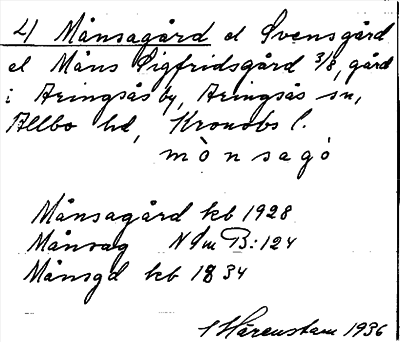 4) Månsagård el Svensgård
el Måns Sigfridsgård 3/8, gård
i Aringsås by, Aringsås sn,
Allbo hd, Kronobs l.
mònsagó
Månsagård kb 1928
Månsag NSm B:124
Månsgd kb 1834
Härenstam 1936